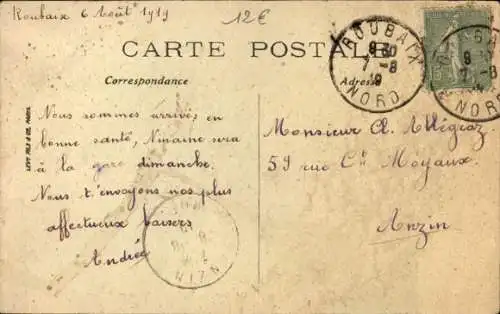 Roubaix 6 Août 1919
12€
CARTE POSTALE
Correspondance
Adresse
ROUBAIX
9 30
7 - 8
19
NORD
9 30
7 - 8
NORD
LEVY FILS & CIE, PARIS
Nous sommes arrivés en
bonne santé, Nmaine sera
à la gare dimanche.
Nous t'envoyons nos plus
affectueux baisers
Andrée
Monsieur A. Allégraz
59 rue Ch Moyaux
Anzin